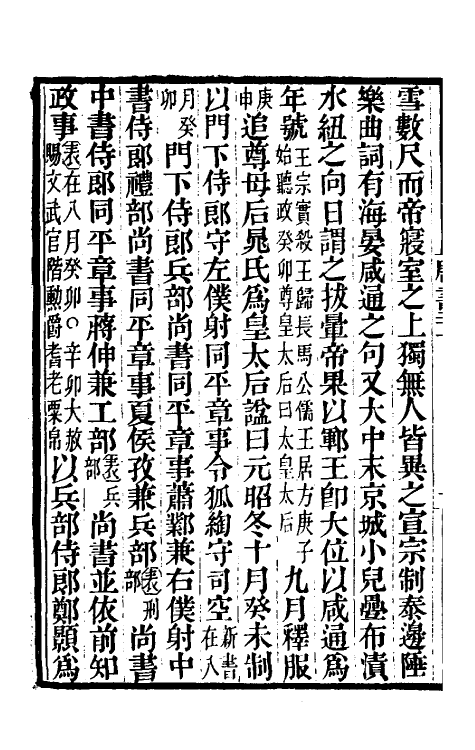 雪數尺而帝寢室之上獨無人皆異之宣宗制泰邊陲
樂曲詞有海晏咸通之句又大中末京城小兒疊布漬
水紐之向日謂之拔暈帝果以鄆王卽大位以咸通爲
年號王宗實殺王歸長馬公儒王居方庚子始聽政癸卯尊皇太后曰太皇太后九月釋服
庚申追尊母后晁氏爲皇太后諡曰元昭冬十月癸未制
以門下侍郎守左僕射同平章事令狐綯守司空新書在八
月癸卯門下侍郎兵部尚書同平章事蕭鄴兼右僕射中
書侍郎禮部尚書同平章事夏侯孜兼兵部表刑部尚書
中書侍郎同平章事蔣伸兼工部表兵部尚書並依前知
政事表在八月癸卯○辛卯大赦賜文武官階勳爵耆老粟帛以兵部侍郎鄭顥爲